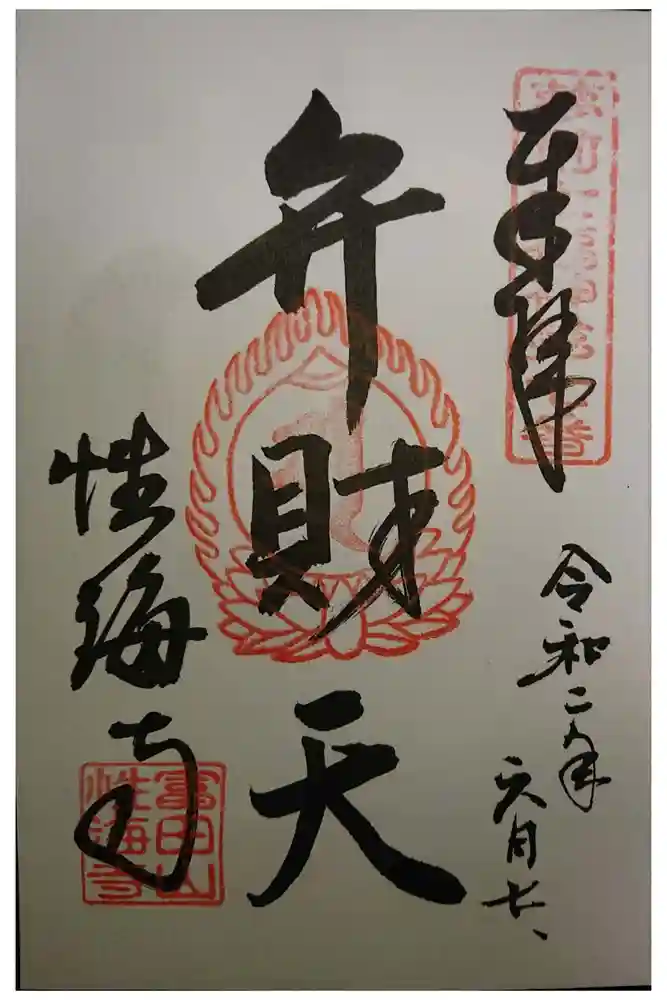 奉拝
令和二年
六月七、
弁財天
性海寺
富田山
性海寺